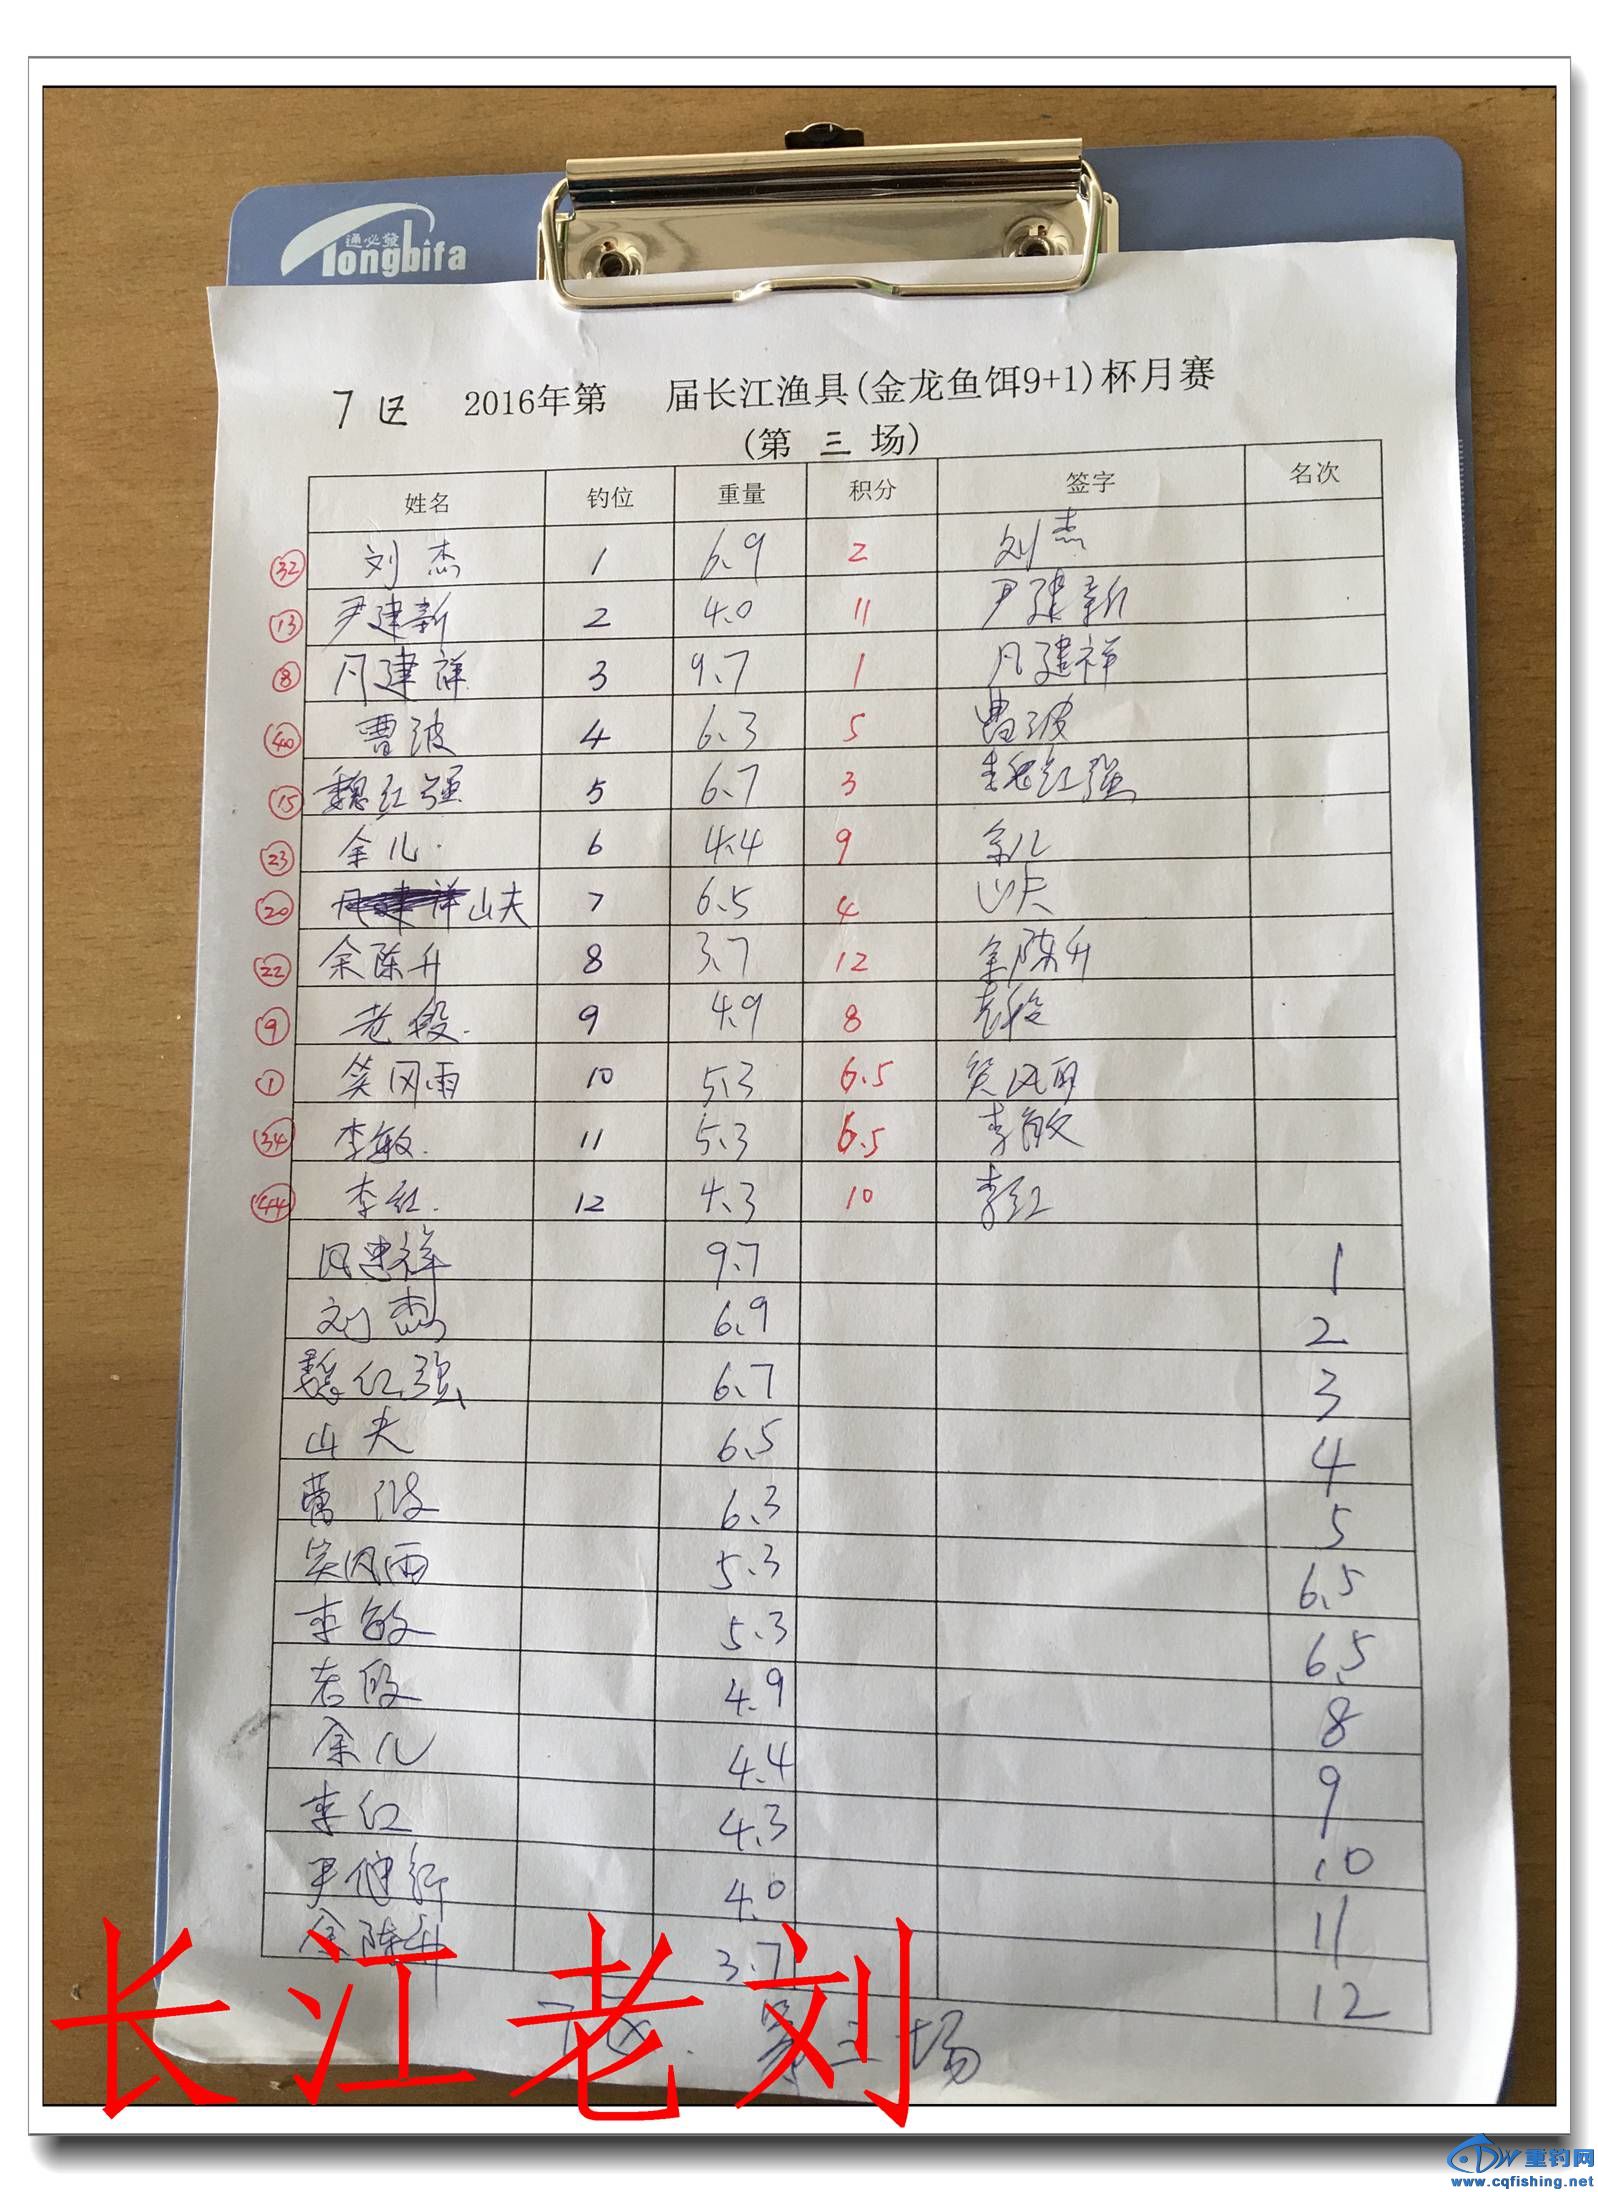 通必發
Tongbifa
7区 2016年第 届长江渔具(金龙鱼饵9+1)杯月赛
(第 三 场)
姓名 钓位 重量 积分 签字 名次
32 刘杰 1 6.9 2 刘杰
13 尹建新 2 4.0 11 尹建新
8 凡建祥 3 9.7 1 凡建祥
40 曹波 4 6.3 5 曹波
15 魏红强 5 6.7 3 魏红强
23 余儿 6 4.4 9 余儿
20 山夫 7 6.5 4 山夫
22 余陈升 8 3.7 12 余陈升
9 老段 9 4.9 8 老段
1 笑风雨 10 5.3 6.5 笑风雨
34 李敏 11 5.3 6.5 李敏
44 李红 12 4.3 10 李红
风建祥 9.7 1
刘杰 6.9 2
魏红强 6.7 3
山夫 6.5 4
曹波 6.3 5
笑风雨 5.3 6.5
李敏 5.3 6.5
老段 4.9 8
余儿 4.4 9
李红 4.3 10
尹健新 4.0 11
余陈升 3.7 12
7区 第三场
长江老刘
重钓网
www.cqfishing.net